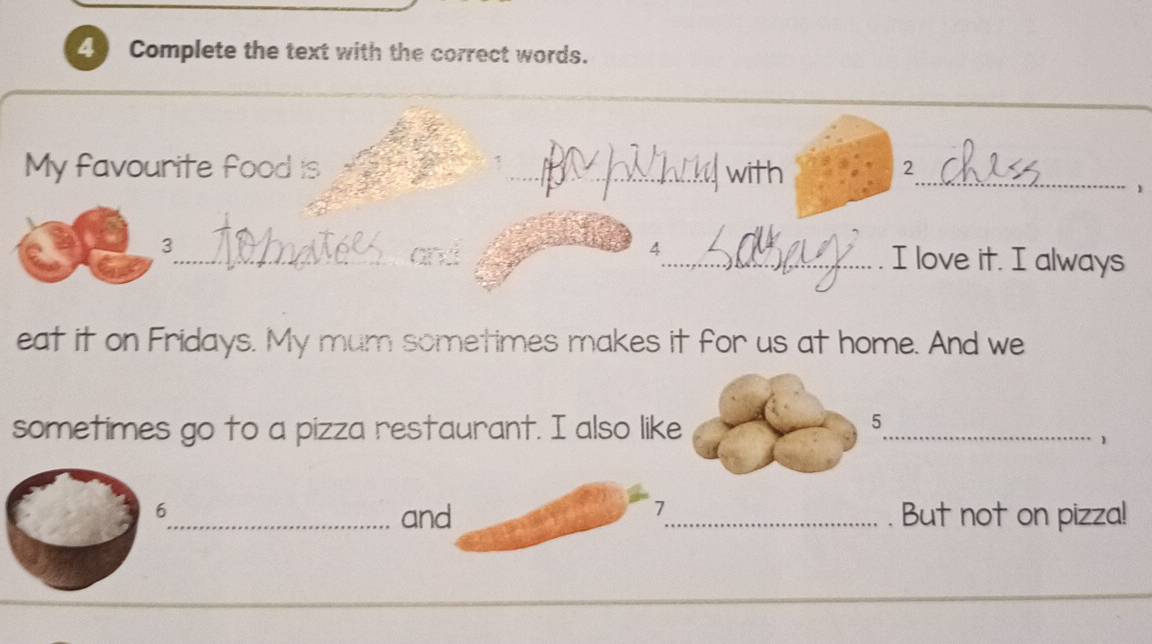 4 Complete the text with the correct words.
My favourite food is 1 with 2 chess ,
3 tomatoes and 4 . I love it. I always
eat it on Fridays. My mum sometimes makes it for us at home. And we
sometimes go to a pizza restaurant. I also like 5 ,
6 and 7 . But not on pizza!